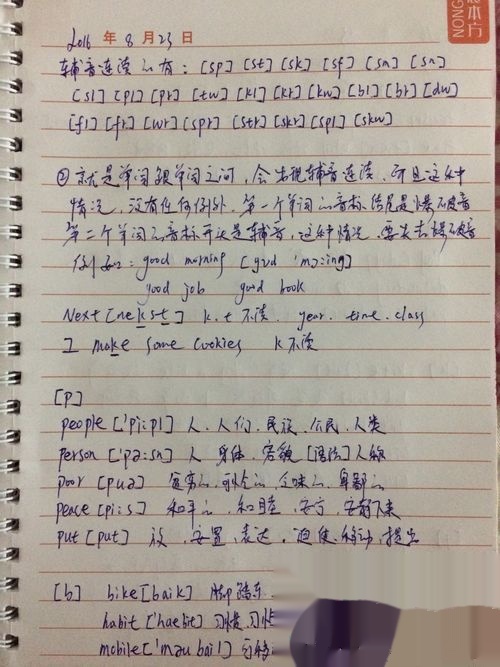 NONG
本方
2016 年 8 月 23 日
辅音连读的有: [sp] [st] [sk] [sf] [sm] [sn]
[sl] [pl] [pr] [tw] [kl] [kr] [kw] [bl] [br] [dw]
[fl] [fr] [wr] [spr] [str] [skr] [spl] [skw]
② 就是单词跟单词之间, 会出现辅音连读, 而且这种
情况, 没有任何例外. 第一个单词的音标结尾是爆破音
第二个单词的音标开头是辅音, 这种情况, 要失去爆破音
例如: good morning [gud 'mɔ:niŋ]
good job good book
Next [nekst] k.t 不读. year. time. class
I make some cookies k 不读
[p]
people ['pi:pl] 人. 人们. 民族. 公民. 人类
person ['pə:sn] 人 身体. 容貌 [语法] 人称
poor [puə] 贫穷的. 可怜的. 乏味的. 卑鄙的
peace [pi:s] 和平的. 和睦. 安宁. 安静下来
put [put] 放. 安置. 表达. 迫使. 移动. 提出
[b] bike [baik] 脚踏车.
habit ['hæbit] 习惯. 习惯
mobile ['məu bail] 可移